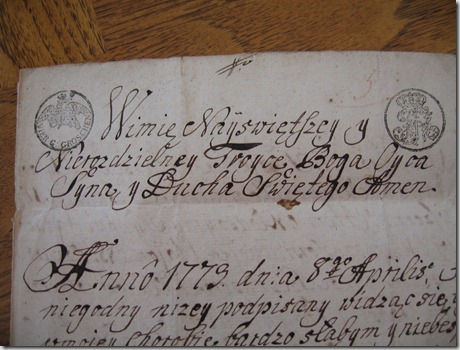 Wimię Nayświętszey y
Nierozdzielney Troyce, Boga Oyca
Syna, y Ducha Swiętego Amen.
Anno 1773. dnia 8go Aprilis,
niegodny niżey podpisany widząc się,
w moiey chorobie bardzo słabym, y